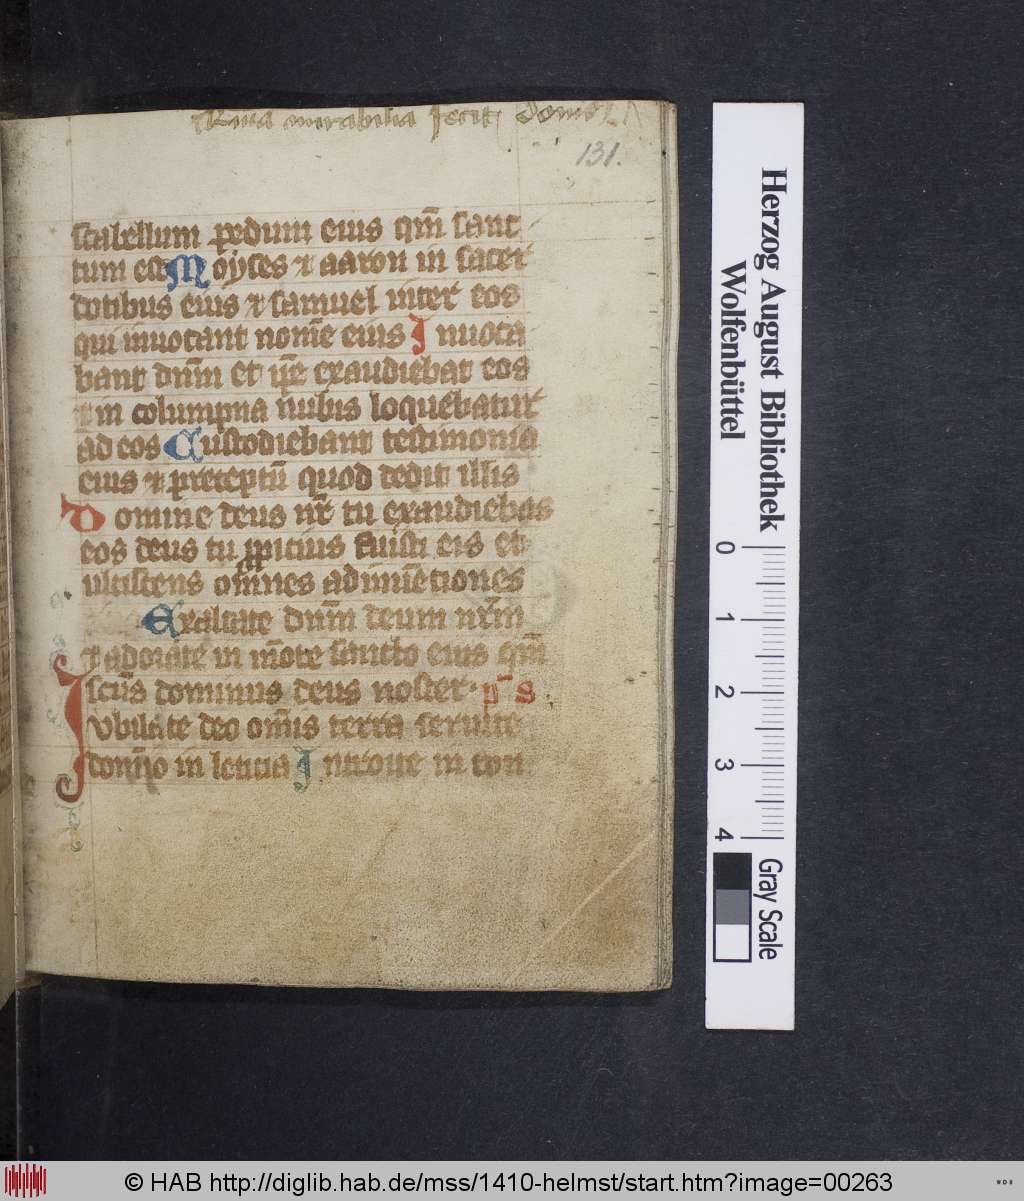 Quia mirabilia fecit domi
131.
scabellum pedum eius qm̄ sanc
tum est Moyses ⁊ aaron in sacer
dotibus eius ⁊ samuel inter eos
qui inuocant nom̄e eius Inuoca
bant dn̄m et ip̄e exaudiebat eos
⁊ in columpna nubis loquebatur
ad eos Custodiebant testimonia
eius ⁊ preceptū quod dedit illis
Domine deus nr̄ tu exaudiebas
eos deus tu ꝓpicius fuisti eis et
ulciscens om̄nes adinuētiones
Exaltate dn̄m deum nr̄m
⁊ adorate in mōte sancto eius qm̄
scūs dominus deus noster. p̄s
Iubilate deo om̄is terra seruite
domīo in leticia Introite in con
Herzog August Bibliothek
Wolfenbüttel
0 1 2 3 4
Gray Scale
© HAB http://diglib.hab.de/mss/1410-helmst/start.htm?image=00263